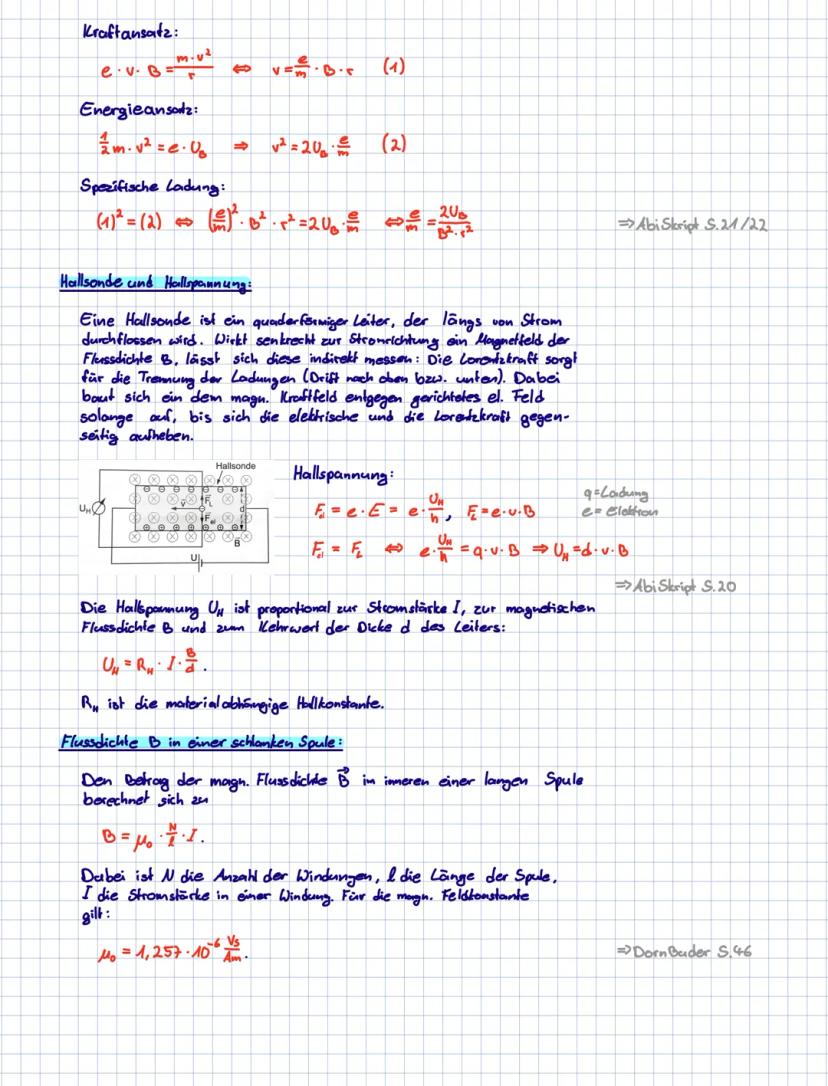 Kraftansatz:
e · v · B = m·v²/r ⇔ v = e/m · B · r (1)
Energieansatz:
1/2 m · v² = e · U_B ⇒ v² = 2U_B · e/m (2)
Spezifische Ladung:
(1)² = (2) ⇔ (e/m)² · B² · r² = 2U_B · e/m ⇔ e/m = 2U_B/B²·r²
⇒ Abi Skript S.21/22
Hallsonde und Hallspannung:
Eine Hallsonde ist ein quaderförmiger Leiter, der längs von Strom
durchflossen wird. Wirkt senkrecht zur Stromrichtung ein Magnetfeld der
Flussdichte B, lässt sich diese indirekt messen: Die Lorentzkraft sorgt
für die Trennung der Ladungen (Drift nach oben bzw. unten). Dabei
baut sich ein dem magn. Kraftfeld entgegen gerichtetes el. Feld
solange auf, bis sich die elektrische und die Lorentzkraft gegen-
seitig aufheben.
Hallsonde
U_H
v
F_L
F_el
d
B
U
Hallspannung:
F_el = e · E = e · U_H/h, F_L = e · v · B
q = Ladung
e = Elektron
F_el = F_L ⇔ e · U_H/h = q · v · B ⇒ U_H = d · v · B
⇒ Abi Skript S.20
Die Hallspannung U_H ist proportional zur Stromstärke I, zur magnetischen
Flussdichte B und zum Kehrwert der Dicke d des Leiters:
U_H = R_H · I · B/d .
R_H ist die materialabhängige Hallkonstante.
Flussdichte B in einer schlanken Spule:
Den Betrag der magn. Flussdichte B⃗ im inneren einer langen Spule
berechnet sich zu
B = μ₀ · N/l · I .
Dabei ist N die Anzahl der Windungen, l die Länge der Spule,
I die Stromstärke in einer Windung. Für die magn. Feldkonstante
gilt:
μ₀ = 1,257 · 10⁻⁶ Vs/Am .
⇒ Dorn Bader S.46